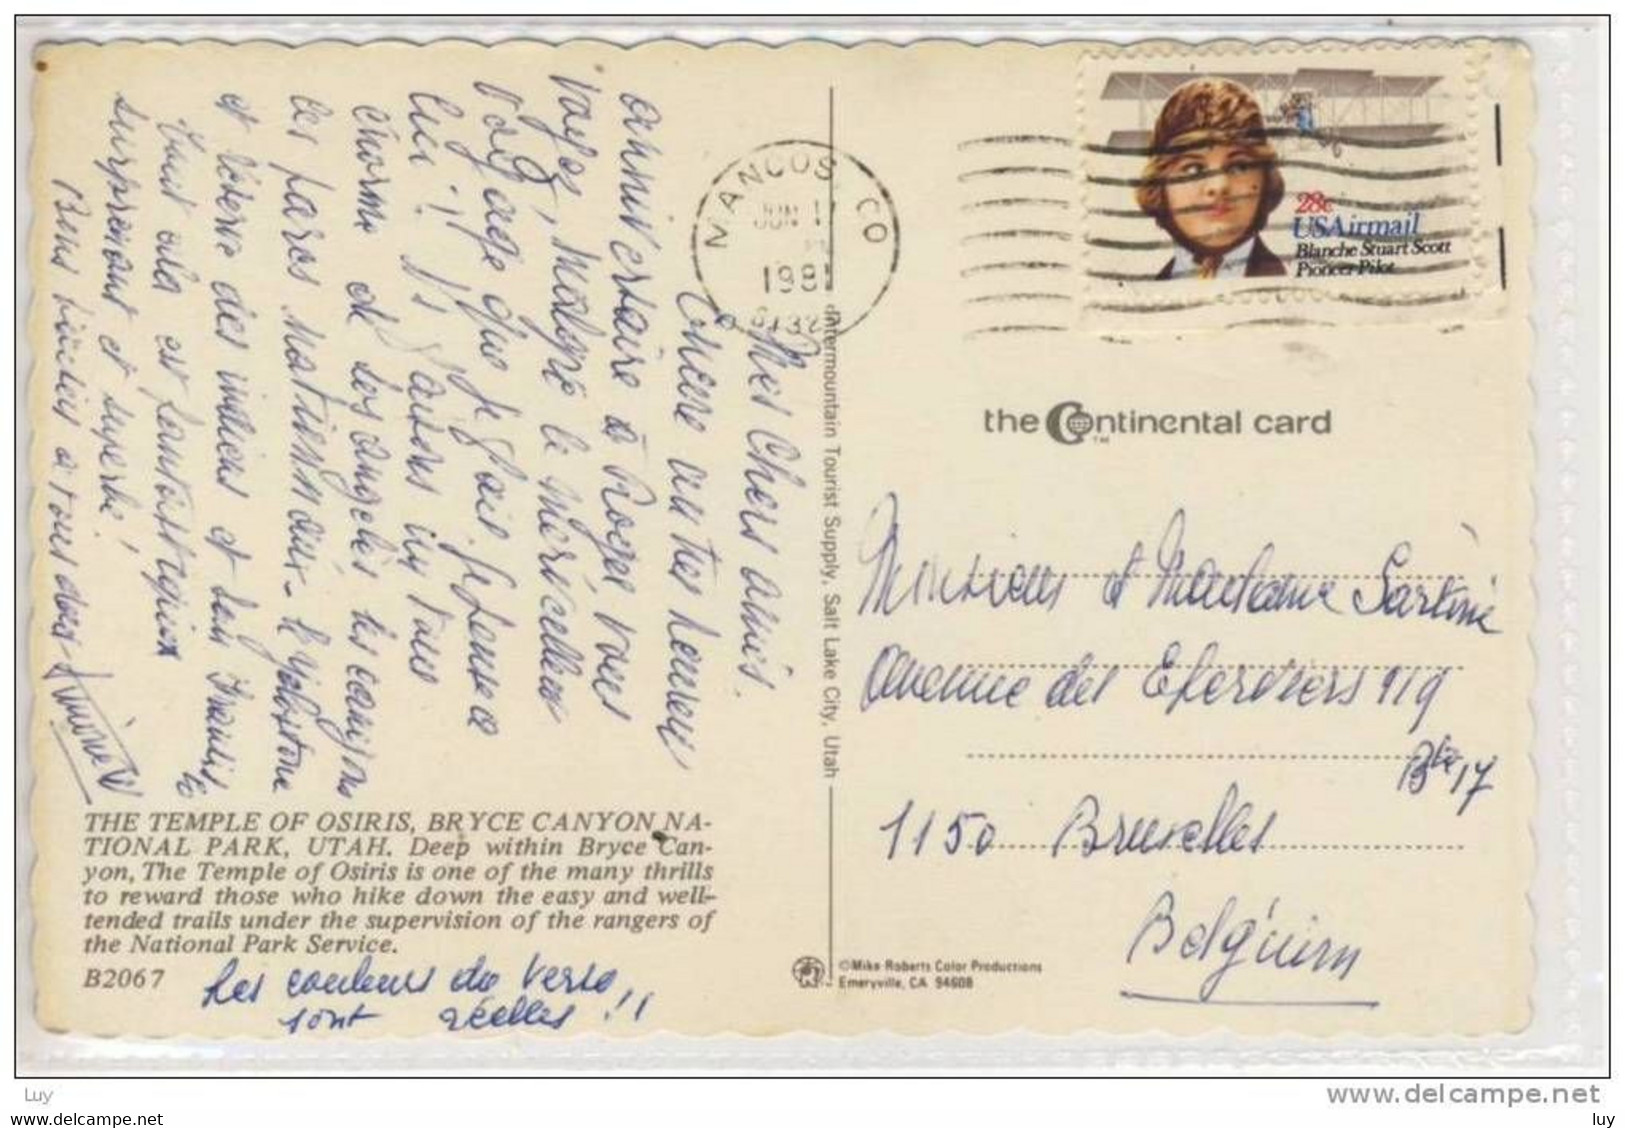 Mes chers amis.
Encore un très heureux
anniversaire à Roger. Vous
voyez, malgré le merveilleux
voyage que je fais. Je pense à
lui !! J'avons un
charme et Los Angeles les canyons
les parcs nationaux - le Yolostone
et réserve des indiens et
Tout cela est fantastique
surprenant et superbe!
Bons baisers à tous deux
MANCOS CO
JUN 1
PM
1981
81328
28c
USAirmail
Blanche Stuart Scott
Pioneer Pilot
the Continental card
TM
Intermountain Tourist Supply, Salt Lake City, Utah
Monsieur et Madame Sartini
Avenue des 119
Bte 17
1150 Bruxelles
Belgium
THE TEMPLE OF OSIRIS, BRYCE CANYON NA-
TIONAL PARK, UTAH. Deep within Bryce Can-
yon, The Temple of Osiris is one of the many thrills
to reward those who hike down the easy and well-
tended trails under the supervision of the rangers of
the National Park Service.
B2067
Les couleurs du verso
sont réelles !!
©Mike Roberts Color Productions
Emeryville, CA 94608
delcampe.net
Luy
Luy
luy
luy